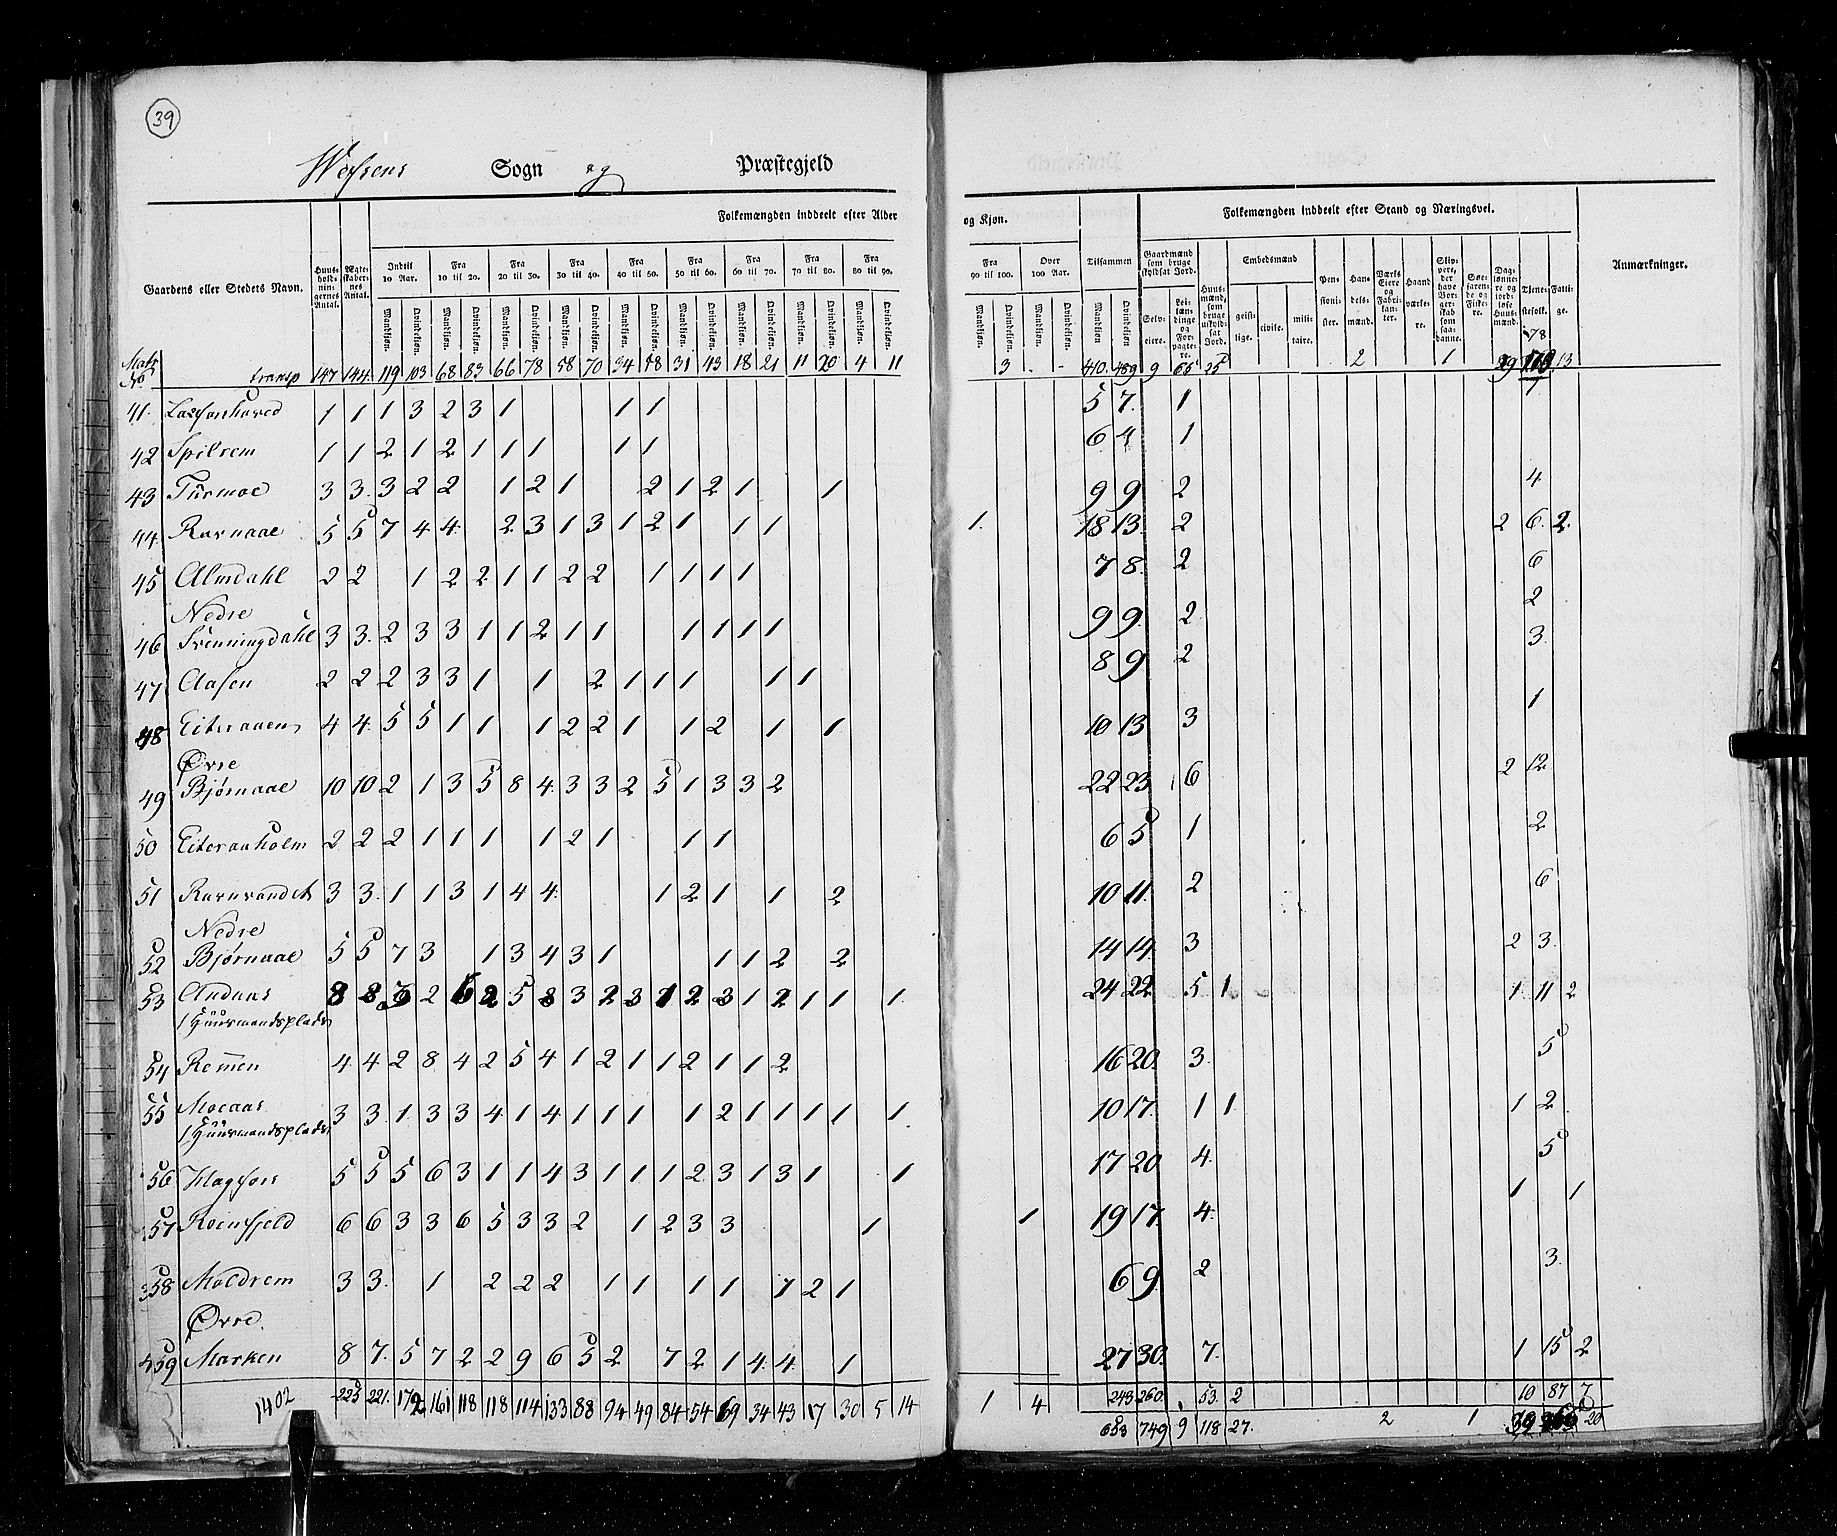 39
Wefsens Sogn og Præstegjeld
Gaardens eller Stedets Navn.
Huusholdningernes Antal.
Ægteskabernes Antal.
Folkemængden inddeelt efter Alder og Kjøn.
Indtil 10 Aar.
Fra 10 til 20.
Fra 20 til 30.
Fra 30 til 40.
Fra 40 til 50.
Fra 50 til 60.
Fra 60 til 70.
Fra 70 til 80.
Fra 80 til 90.
Fra 90 til 100.
Over 100 Aar.
Tilsammen
Mandkjøn. Qvindekjøn.
Folkemængden inddeelt efter Stand og Næringsvei.
Gaardmænd som bruge skyldsat Jord.
Selveiere.
Leilændinge og Forpagtere.
Huusmænd, som bruge uskyldsat Jord.
Embedsmænd
geistlige.
civile.
militaire.
Pensionister.
Handelsmænd.
Værks Eiere og Fabrikanter.
Haandværkere.
Dagslønnere og jordløse Huusmænd.
Tjenestefolk.
Fattige.
Anmærkninger.
transp 147 144 119 103 68 83 66 78 58 70 34 48 31 43 18 21 11 20 4 11 3 410 489 9 65 25 2 1 29 13
41. 1 1 1 3 2 3 1 1 1 5 7. 1 1
42 Spilrem 1 1 2 1 2 1 1 1 1 1 6 4 1
43 Turmoe 3 3. 3 2 2 1 2 1 2 1 2 1 1 9 9 2 4
44. Ravnaae 5 5 7 4 4. 2 3 1 3 1 2 1 1 1 1. 18 13. 2 2 6. 2.
45 Almdahl 2 2 1 2 2 1 1 2 2 1 1 1 1 7 8. 2 6
46 Nedre Svenningdahl 3 3. 2 3 3 1 1 2 1 1 1 1 1 1 9 9. 2. 2
47 Aasen 2 2 2 3 3 1 1 2 1 1 1 1 1 8 9 2 3.
48 Eiteraaen 4 4. 5 5 1 1 1 2 2 1 1 2 1 1 10 13 3 1
49 Øvre Bjørnaae 10 10 2 1 3 5 8 4. 3 3 2 5 1 3 3 2 22 23 6 2 12
50 Eiteraaholm 2 2 2 1 1 1 1 2 1 1 1 6 5 1 2
51 Ravnvandet 3 3. 1 1 3 1 4 4. 1 2 1 1 2 10 11. 2 6
52 Nedre Bjørnaae 5 5 7 3 1 3 4 3 1 1 1 2 2 14 14. 3 2 3.
53 Andaas 8 8 3 2 6 2 5 8 3 2 3 1 2 3 1 2 1 1 1 24 22 5 1 1 11 2
1 Huusmandsplads
54 Remen 4 4 2 8 4 2 5 4 1 2 1 1 2 1 1 2 16 20. 3. 5
55 Moeaas 3 3 1. 3 3 4 1 4 1 1 1 1 2 1 1 1 1 1 10 17. 1 1 1 2
1 Huusmandsplads
56 Hagfors 5 5 5 6 3 1 1 4 3 1 1 1 2 3 1 3 1 1 17 20 4. 5
57 Reinfjeld 6 6 3 3 6 5 3 3 2 1 2 3 3 1 1 19 17. 4. 1 1
58 Moldrem 3 3. 1 2 2 2 1 1 1 1 1 2 1 6 9. 2 3.
59 Øvre Marken 8 7. 5 7 2 2 9 6 5 2 7 2 1 4. 4. 1 27 30. 7. 1 15 2
1402 225 221. 172 161 118 118 114 133 88 94 49 84 54 69 34 43 17 30 5 14 1 4 243 260 53 2 10 87 7
653 749 9 118 27. 2 1 39 20